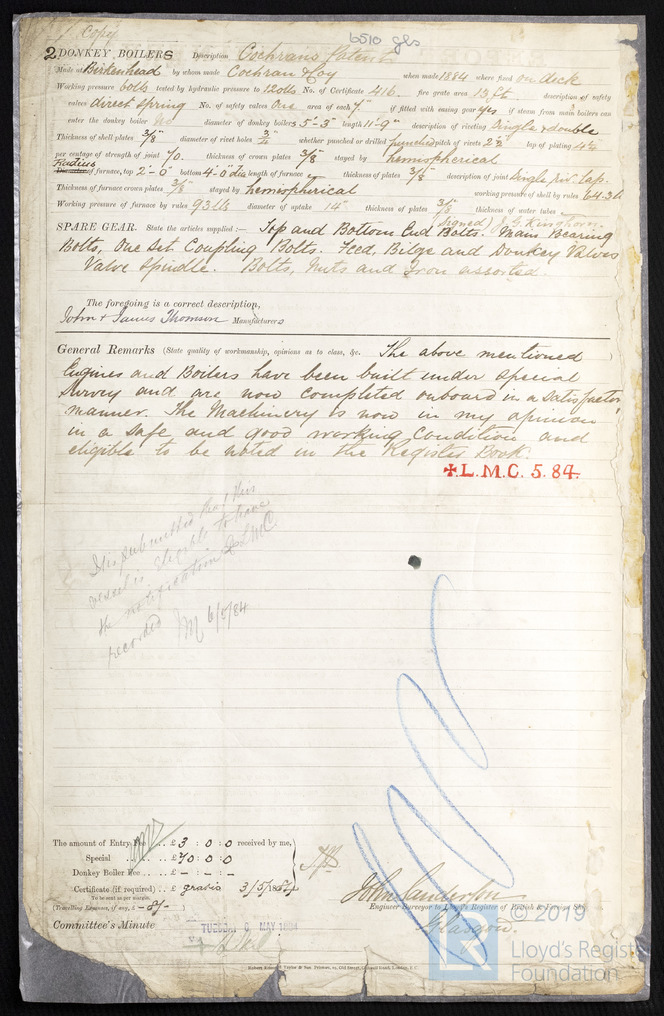 Copy
6510 gls
2 DONKEY BOILERS Description Cochrans Patent
Made at Birkenhead by whom made Cochran & Coy when made 1884 where fixed on deck
Working pressure 60lbs tested by hydraulic pressure to 120lbs No. of Certificate 416 fire grate area 13 ft description of safety
valves direct spring No. of safety valves One area of each 7" if fitted with easing gear yes if steam from main boilers can
enter the donkey boiler No diameter of donkey boilers 5'-3" length 11'-9" description of riveting Single & double
Thickness of shell plates 3/8" diameter of rivet holes 3/4" whether punched or drilled punched pitch of rivets 2 1/2" lap of plating 4 1/2
per centage of strength of joint 70. thickness of crown plates 3/8" stayed by hemispherical
Radius
Diameter of furnace, top 2'-0" bottom 4'-0" dia length of furnace thickness of plates 3/8" description of joint Single riv. lap.
Thickness of furnace crown plates 3/8" stayed by hemispherical working pressure of shell by rules 64.3 lb
Working pressure of furnace by rules 93 lbs diameter of uptake 14" thickness of plates 3/8" thickness of water tubes
(signed) J. G. Kinghorn
SPARE GEAR. State the articles supplied:— Top and Bottom End Bolts. Main Bearing
Bolts, One Set Coupling Bolts. Feed, Bilge and Donkey Valves
Valve Spindle. Bolts, Nuts and Iron assorted
The foregoing is a correct description,
John & James Thomson Manufacturers
General Remarks (State quality of workmanship, opinions as to class, &c. The above mentioned
Engines and Boilers have been built under Special
Survey and are now completed onboard in a satisfactory
manner. The Machinery is now in my opinion
in a safe and good working condition and
eligible to be noted in the Register Book.
✠L.M.C. 5.84.
It is submitted that this
vessel is eligible to have
the notification ✠LMC
recorded M 6/5/84
The amount of Entry Fee .. £ 3 : 0 : 0 received by me,
Special .. £ 70 : 0 : 0
Donkey Boiler Fee .. £ - : - : -
Certificate (if required) .. £ gratis 3/5/1884
To be sent as per margin.
(Travelling Expenses, if any, £ - 8/- )
John Sanderson
Engineer Surveyor to Lloyd's Register of British & Foreign Shipping
Glasgow.
Committee's Minute
TUESDAY 6 MAY 1884
© 2019
Lloyd's Register
Foundation